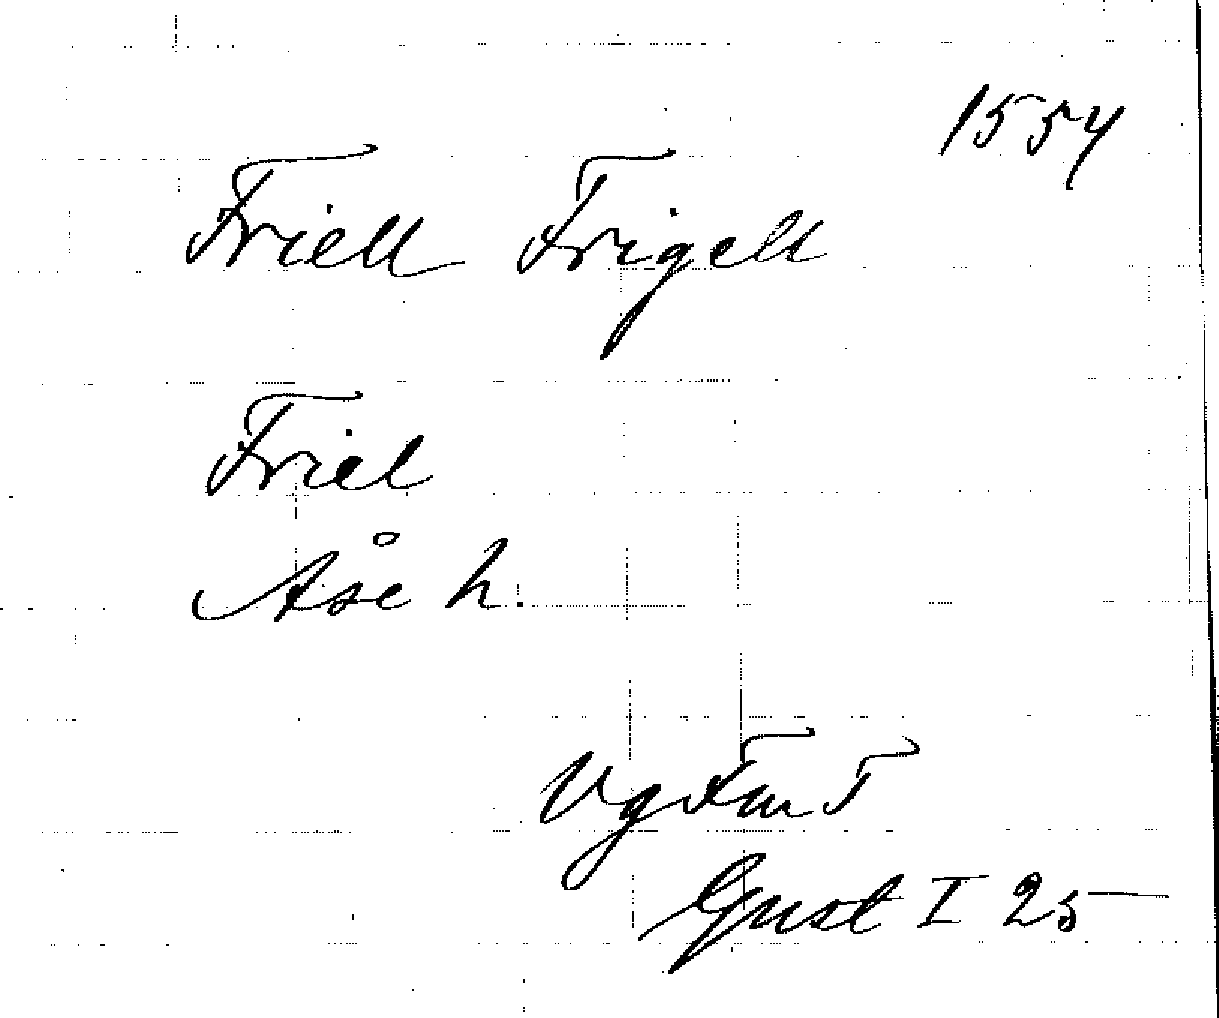 1554
Friell Frigell
Friel
Åse h.
Vg Fm T
Gust I 25